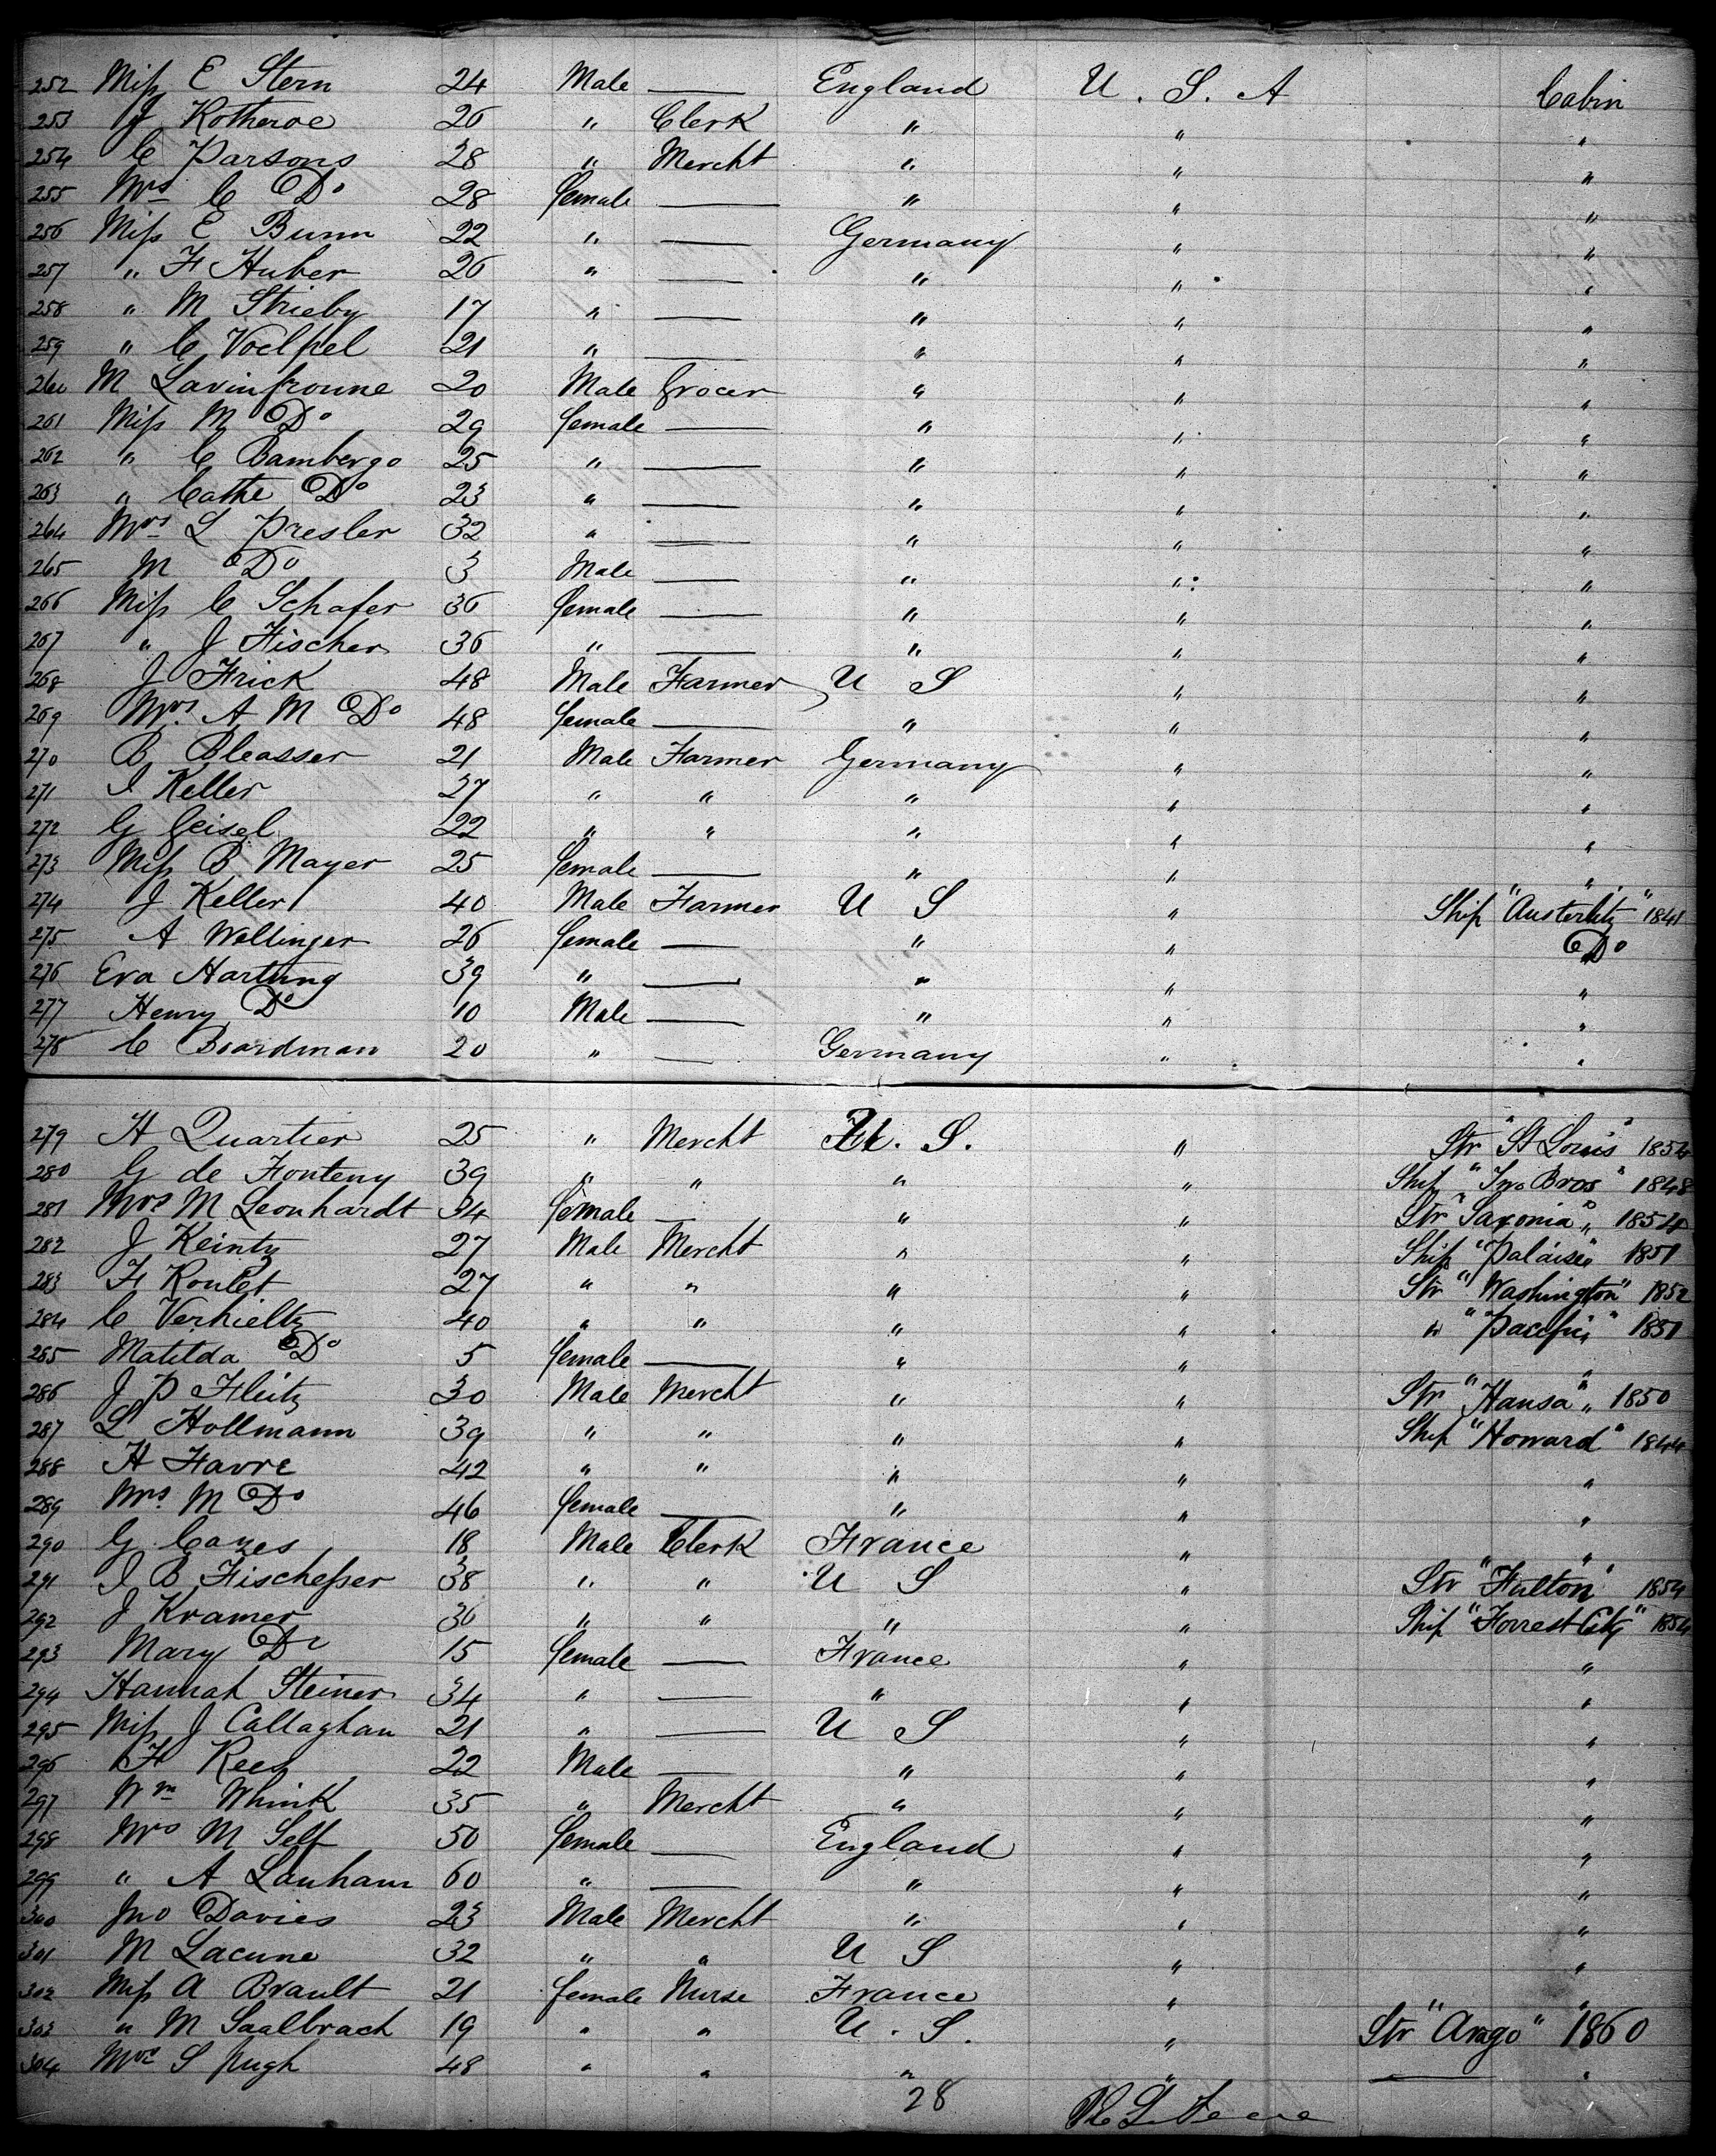 252 Miss E Stern 24 Male — England U. S. A Cabin
253 J Kotheroe 26 " Clerk " " "
254 C Parsons 28 " Mercht " " "
255 Mrs C Do 28 female — " " "
256 Miss E Bunn 22 " — Germany " "
257 " F Huber 26 " — " " "
258 " M Strieby 17 " — " " "
259 " C Voelpel 21 " — " " "
260 M 20 Male Grocer " " "
261 Miss M Do 29 female — " " "
262 " C Bambergo 25 " — " " "
263 " Cathe Do 23 " — " " "
264 Mrs L Presler 32 " — " " "
265 M Do 3 Male — " " "
266 Miss C Schafer 36 female — " " "
267 " J Fischer 36 " — " " "
268 J Frick 48 Male Farmer U S " "
269 Mrs A M Do 48 female — " " "
270 B Bleasser 21 Male Farmer Germany " "
271 I Keller 27 " " " " "
272 G Geisel 22 " " " " "
273 Miss B Mayer 25 female — " " "
274 J Keller 40 Male Farmer U S " Ship "Austerlitz" 1841
275 A Wellinger 26 female — " " Do
276 Eva Hartung 39 " — " " "
277 Henry Do 10 Male — " " "
278 C Boardman 20 " — Germany " "
279 H Quartier 25 " Mercht U. S. " Str "St Louis" 1854
280 G de Fonteny 39 " " " " Ship "Two Bros" 1848
281 Mrs M Leonhardt 34 female — " " Str "Saxonia" 1854
282 J Keintz 27 Male Mercht " " Ship 1851
283 F Roulet 27 " " " " Str "Washington" 1852
284 C Verhieltz 40 " " " " " "Pacific" 1851
285 Matilda Do 5 female — " " "
286 J P Fleitz 30 Male Mercht " " Str "Hansa" 1850
287 L Hollmann 39 " " " " Ship "Howard" 1844
288 H Favre 42 " " " " "
289 Mrs M Do 46 female — " " "
290 G Cazes 18 Male Clerk France " "
291 I B Fischesser 38 " " U S " Str "Fulton" 1854
292 J Kramer 36 " " " " Ship "Forrest City" 1854
293 Mary Do 15 female — France " "
294 Hannah Steiner 34 " — " " "
295 Miss J Callaghan 21 " — U S " "
296 F Rees 22 Male — " " "
297 Wm Whink 35 " Mercht " " "
298 Mrs M Self 50 female — England " "
299 " A Lanham 60 " — " " "
300 Jno Davies 23 Male Mercht " " "
301 M Lacune 32 " " U S " "
302 Miss A Brault 21 female Nurse France " "
303 " M Saalbrach 19 " " U. S. " Str "Arago" 1860
304 Mrs S Pugh 48 " " " " — "
28